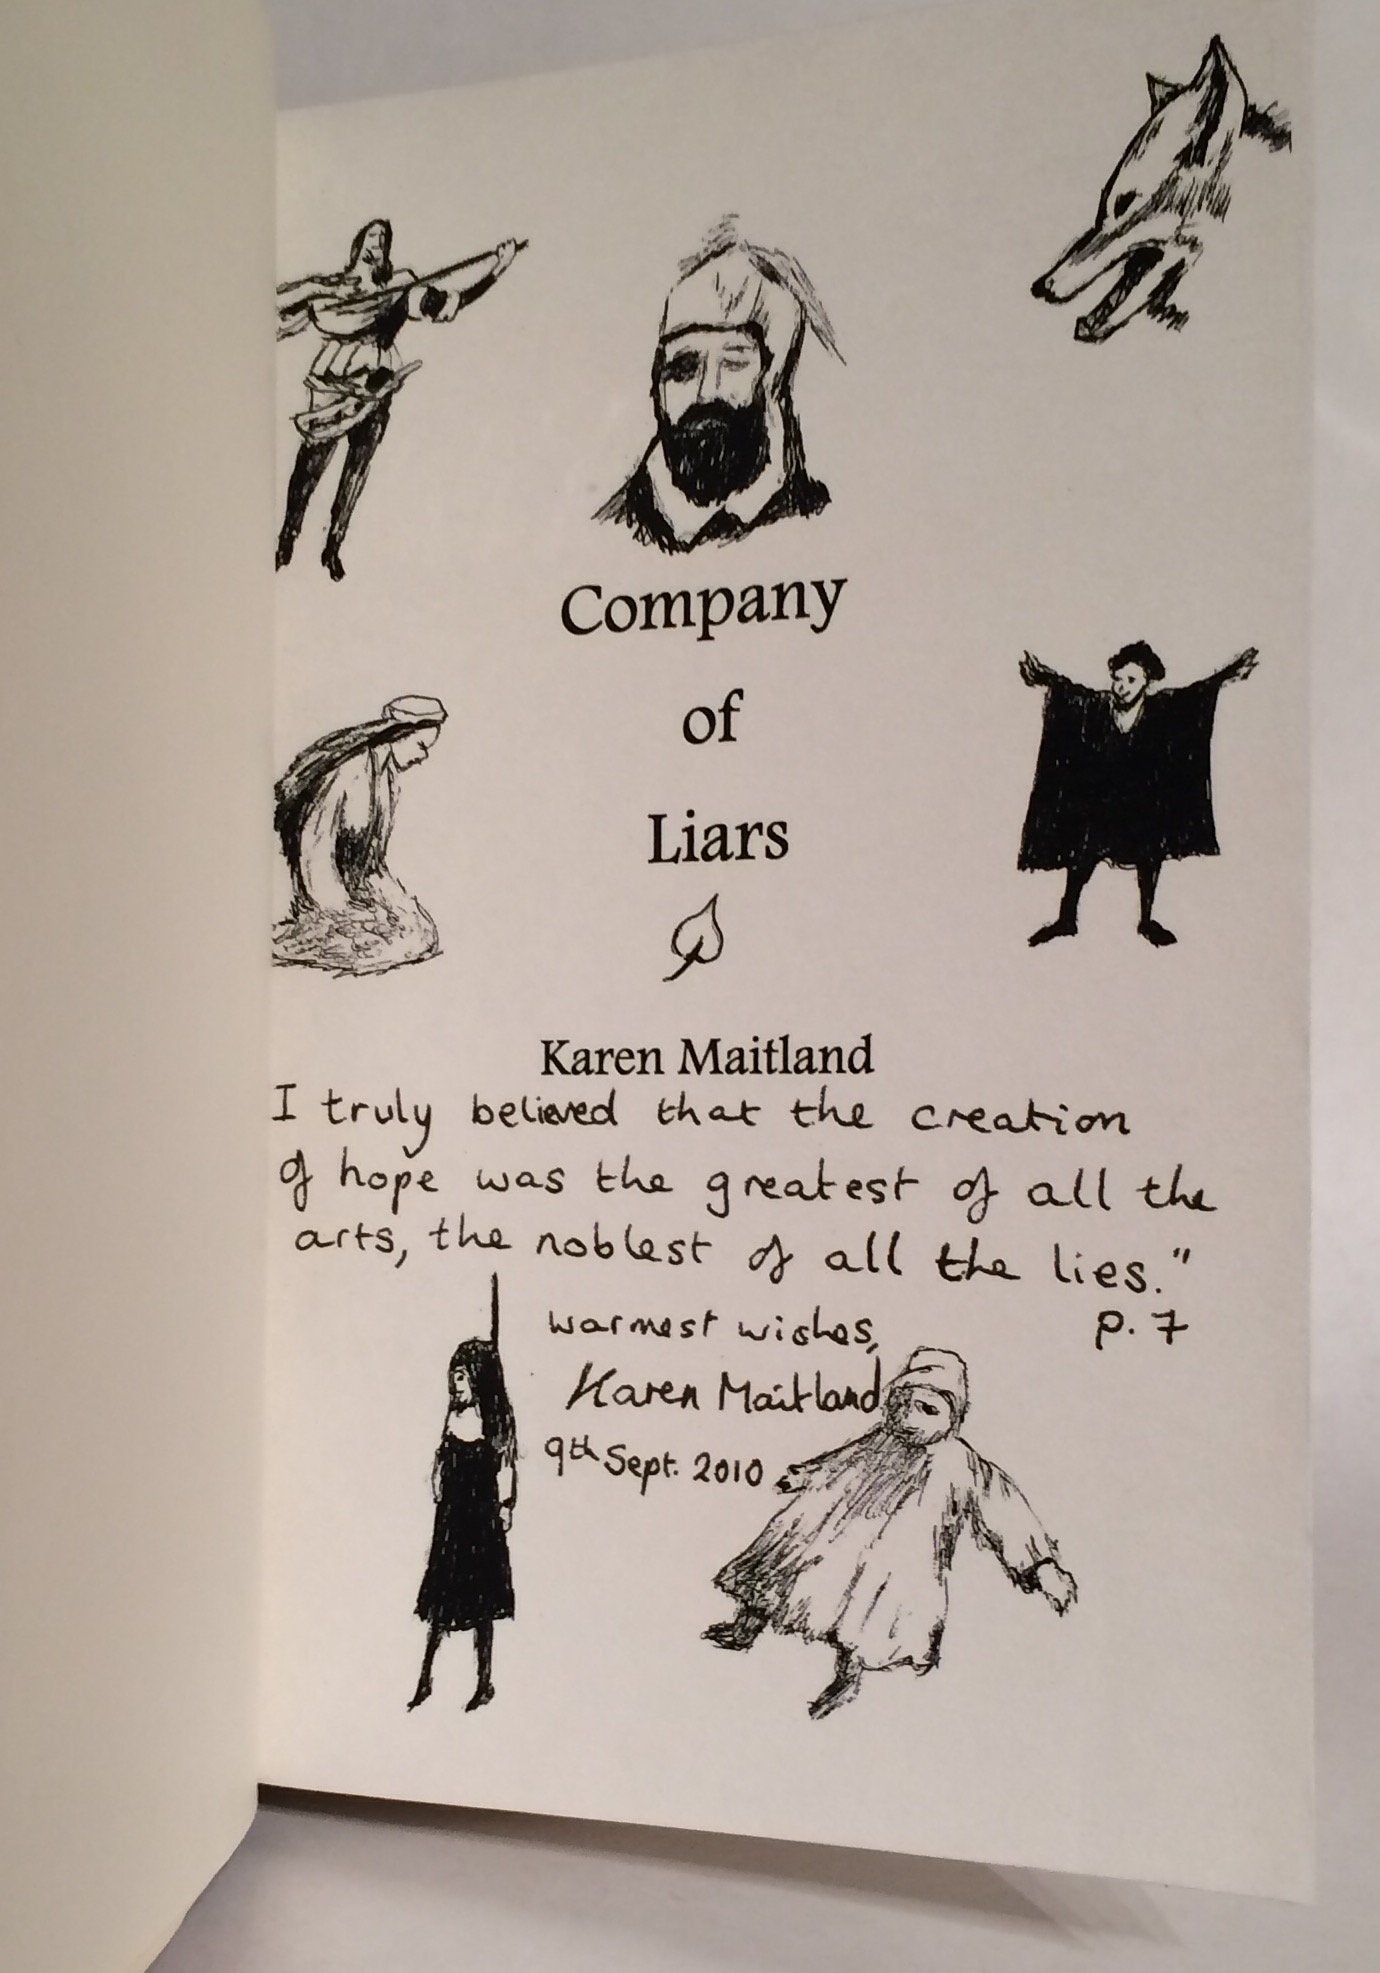 Company
of
Liars
Karen Maitland
I truly believed that the creation
of hope was the greatest of all the
arts, the noblest of all the lies."
p. 7
warmest wishes,
Karen Maitland
9th Sept. 2010